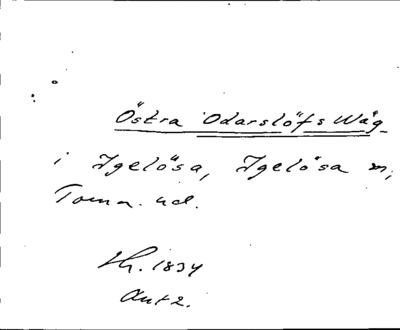 Östra Odarslöfs Wäg
i Igelösa, Igelösa m,
Torna hd.
1834
Akt 2.